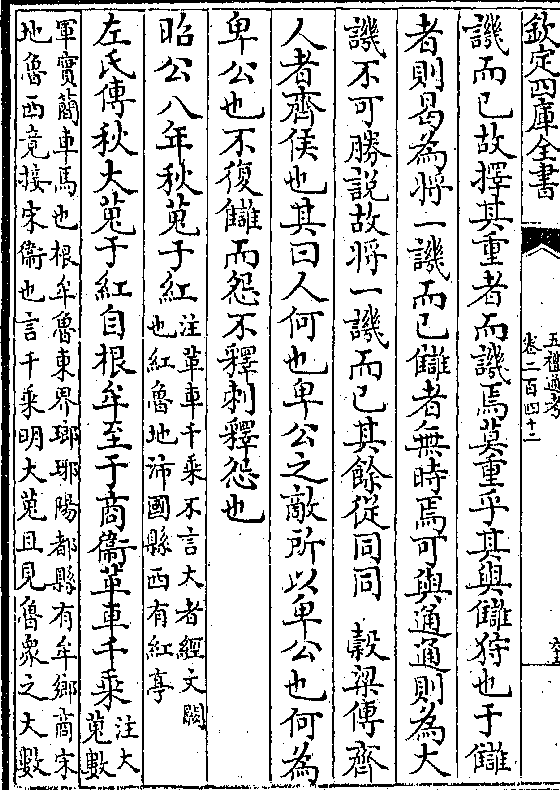 欽定四庫全書
五禮通考
卷二百四十二
譏而已故擇其重者而譏焉莫重乎其與讎狩也于讎
者則曷為將一譏而已讎者無時焉可與通通則為大
譏不可勝說故將一譏而已其餘從同同 榖梁傳齊
人者齊侯也其曰人何也卑公之敵所以卑公也何為
卑公也不復讎而怨不釋刺釋怨也
昭公八年秋蒐于紅注革車千乗不言大者經文闕
也紅魯地沛國縣西有紅亭
左氏傳秋大蒐于紅自根牟至于商衛革車千乗注大
蒐數
軍實簡車馬也根牟魯東界瑯琊陽都縣有牟鄉商宋
地魯西竟接宋衞也言千乘明大蒐且見魯衆之大數